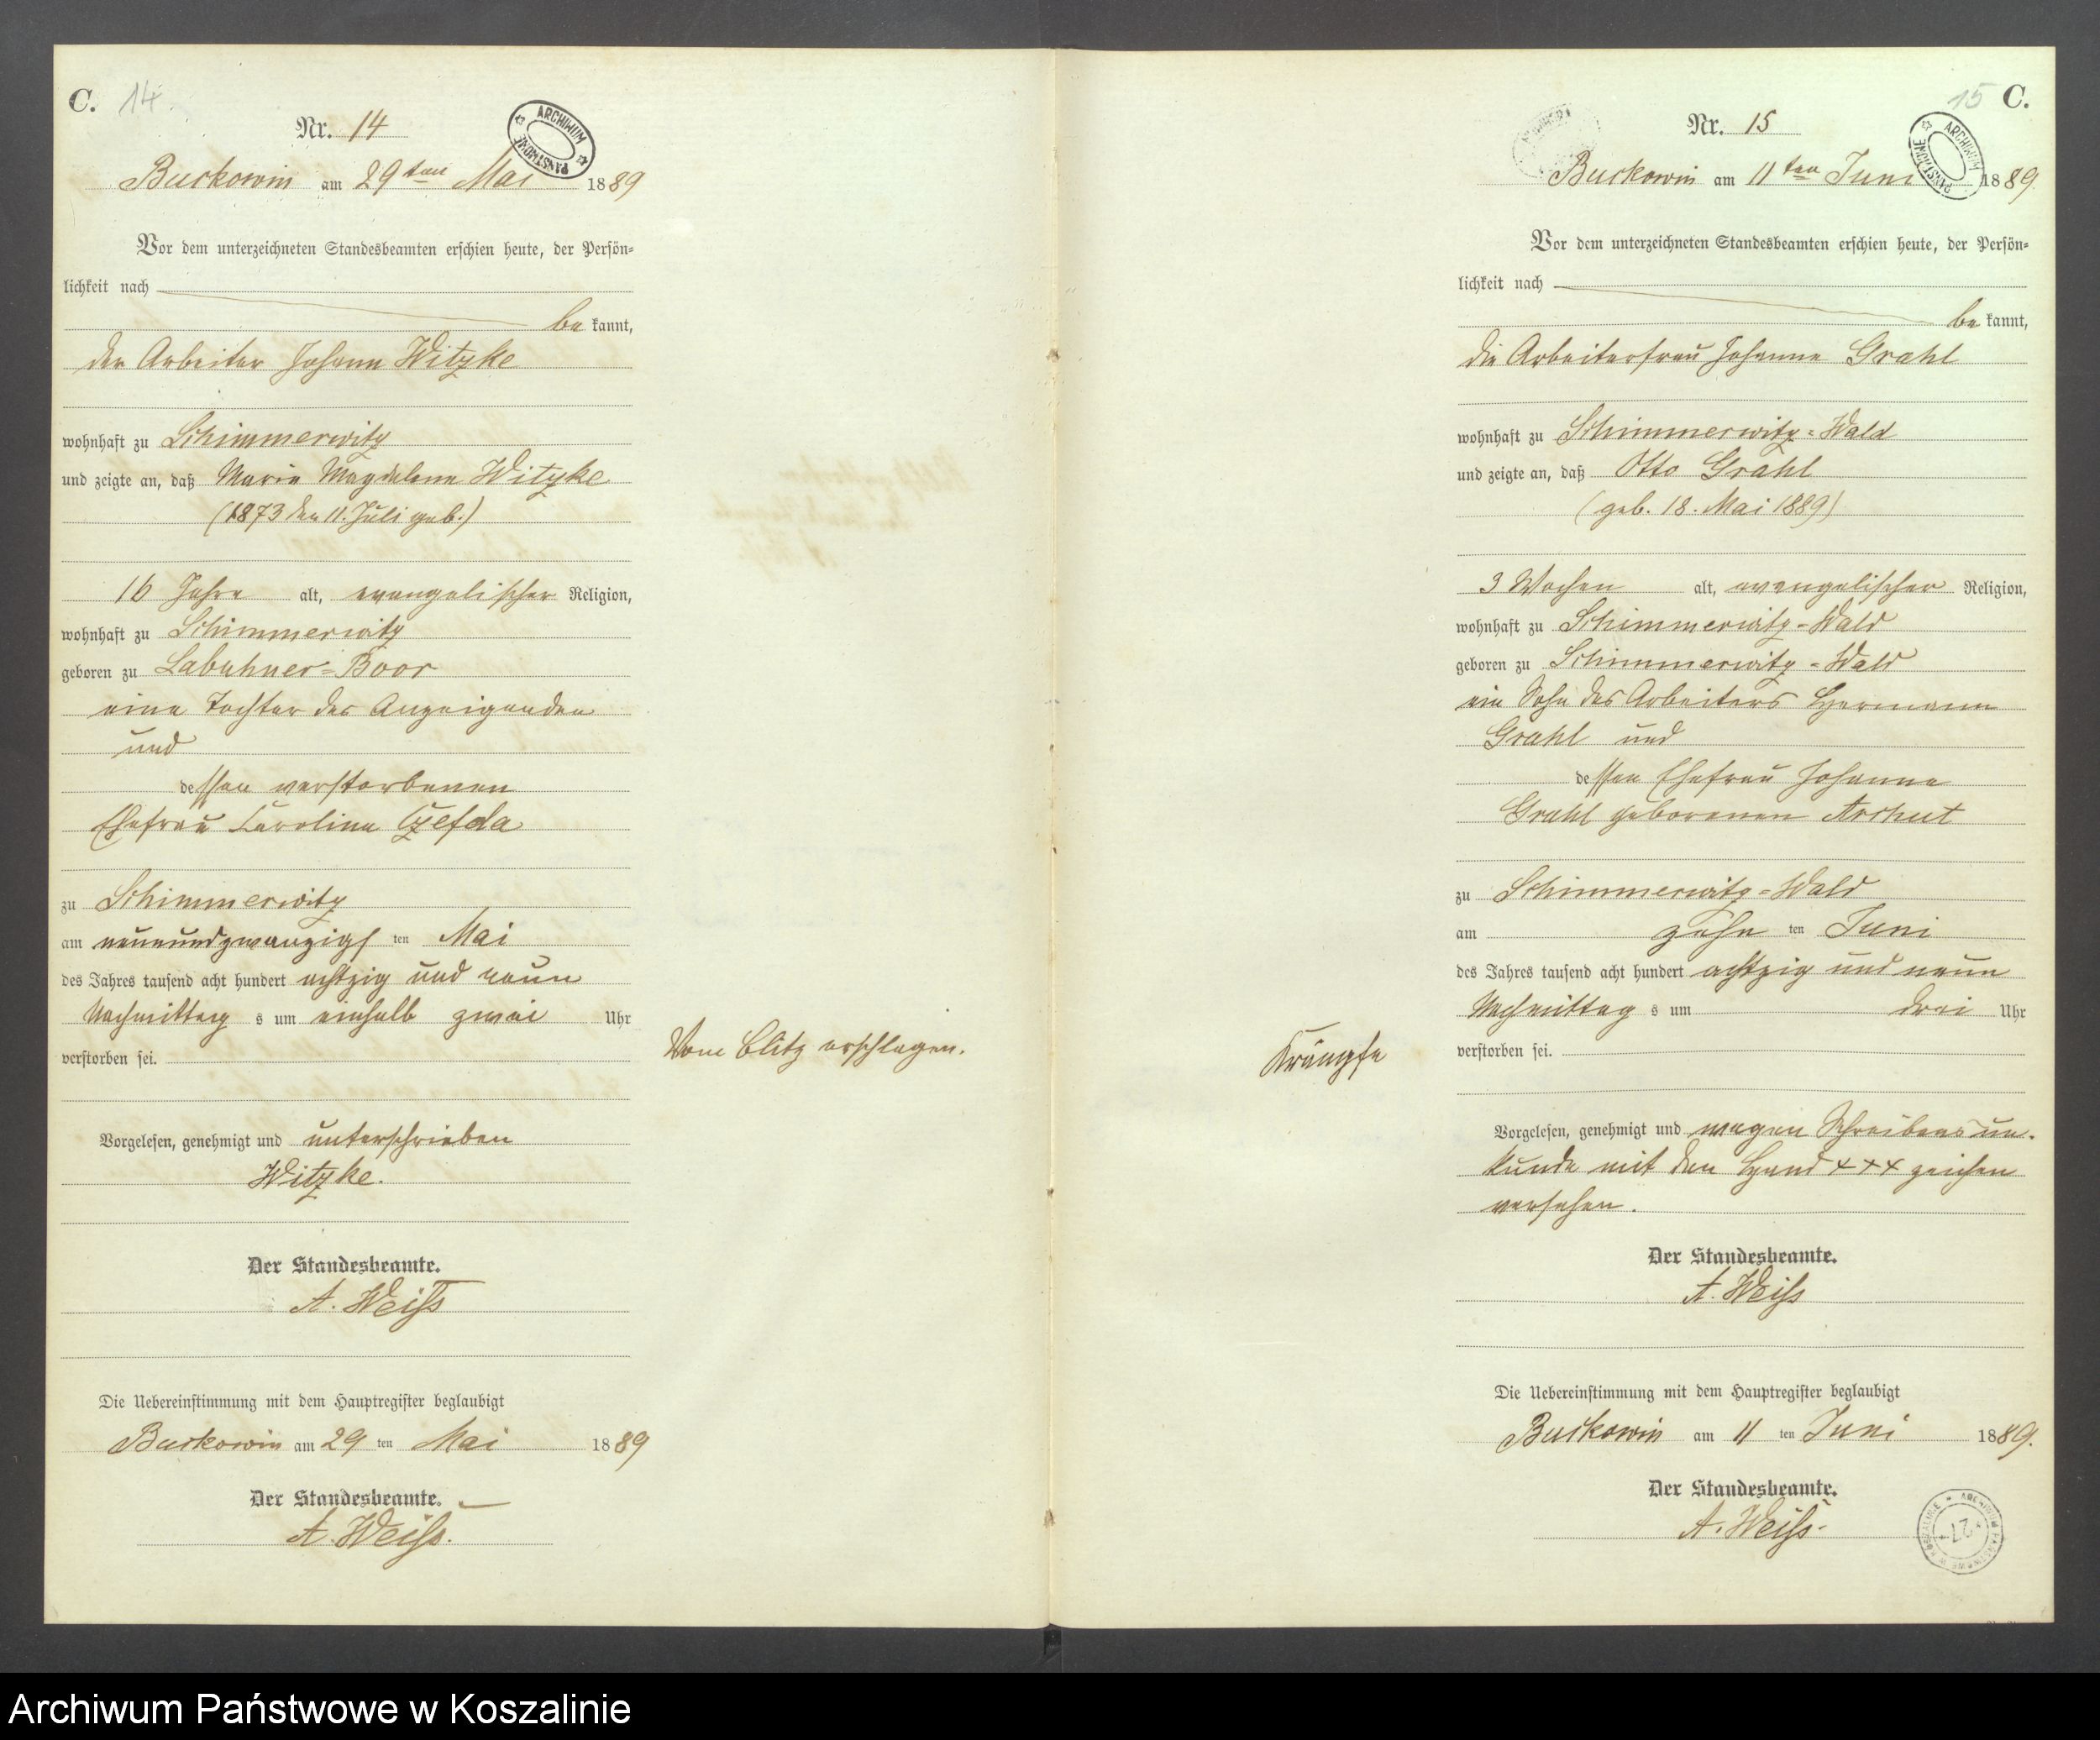 C. 14.
Nr. 14
ARCHIWUM PAŃSTWOWE
Buckowin am 29ten Mai 1889
Vor dem unterzeichneten Standesbeamten erschien heute, der Persön-
lichkeit nach
bekannt,
der Arbeiter Johann Witzke
wohnhaft zu Schimmerwitz
und zeigte an, daß Maria Magdalena Witzke
(1873 den 11. Juli geb.)
16 Jahre alt, evangelischer Religion,
wohnhaft zu Schimmerwitz
geboren zu Labuhner-Boor
eine Tochter des Anzeigenden
und
dessen verstorbenen
Ehefrau Caroline Czefda
zu Schimmerwitz
am neunundzwanzigsten Mai
des Jahres tausend acht hundert achtzig und neun
Nachmittags um einhalb zwei Uhr
verstorben sei.
Vom Blitz erschlagen.
Vorgelesen, genehmigt und unterschrieben
Witzke.
Der Standesbeamte.
A. Weiß
Die Uebereinstimmung mit dem Hauptregister beglaubigt
Buckowin am 29ten Mai 1889
Der Standesbeamte.
A. Weiß.
15 C.
Nr. 15
ARCHIWUM PAŃSTWOWE
Buckowin am 11ten Juni 1889.
Vor dem unterzeichneten Standesbeamten erschien heute, der Persön-
lichkeit nach
bekannt,
die Arbeiterfrau Johanne Grahl
wohnhaft zu Schimmerwitz-Wald
und zeigte an, daß Otto Grahl
(geb. 18. Mai 1889)
3 Wochen alt, evangelischer Religion,
wohnhaft zu Schimmerwitz-Wald
geboren zu Schimmerwitz-Wald
ein Sohn des Arbeiters Hermann
Grahl und
dessen Ehefrau Johanne
Grahl geborenen Arckut
zu Schimmerwitz-Wald
am zehnten Juni
des Jahres tausend acht hundert achtzig und neun
Nachmittags um drei Uhr
verstorben sei.
Krämpfe
Vorgelesen, genehmigt und wegen Schreibensun-
kunde mit den Hand +++ zeichen
versehen.
Der Standesbeamte.
A. Weiß
Die Uebereinstimmung mit dem Hauptregister beglaubigt
Buckowin am 11ten Juni 1889.
Der Standesbeamte.
A. Weiß.
ARCHIWUM PAŃSTWOWE W KOSZALINIE
27
Archiwum Państwowe w Koszalinie